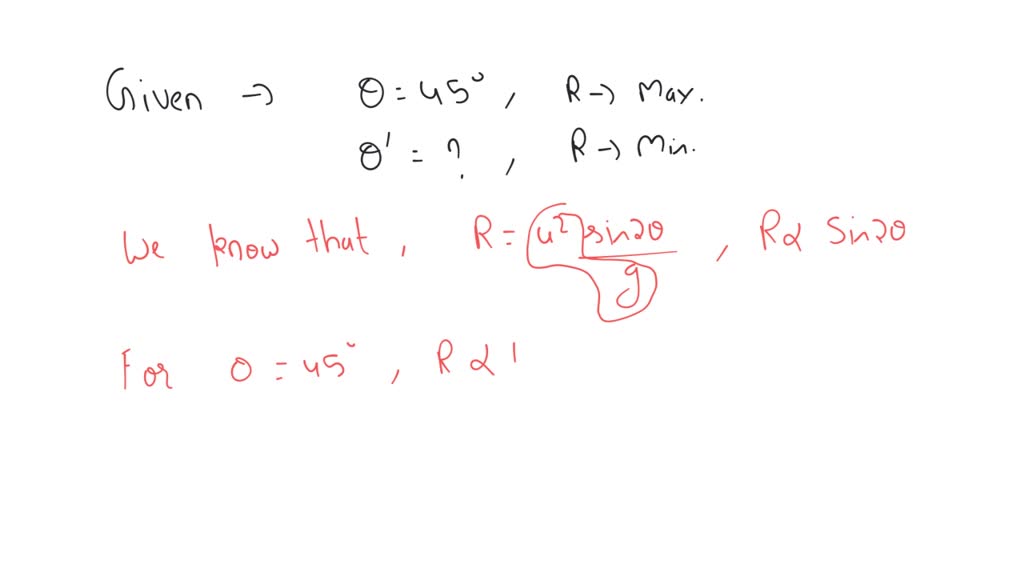 Given → θ = 45°, R → Max.
θ' = ?, R → Min.
We know that, R = u² sin2θ / g, R ∝ Sin2θ
For θ = 45°, R ∝ 1